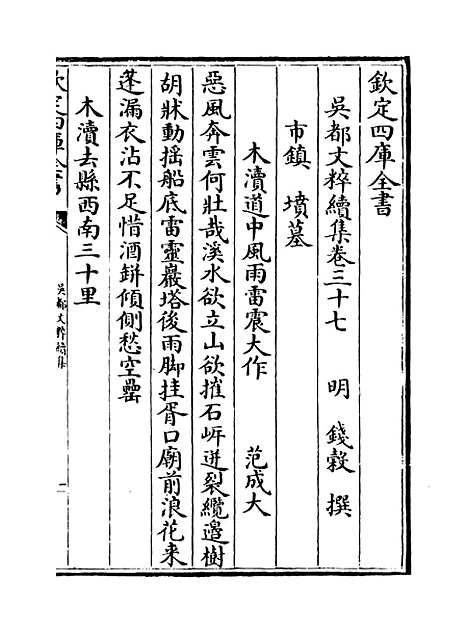 欽定四庫全書
吳都文粹續集卷三十七　明　錢穀　撰
市鎮　墳墓
木瀆道中風雨雷震大作　范成大
惡風奔雲何壯哉溪水欲立山欲摧石岍迸裂纜邉樹
胡牀動揺船底雷靈巖塔後雨脚挂胥口廟前浪花来
蓬漏衣沾不足惜酒缾傾側愁空罍
木瀆去縣西南三十里
欽定四庫全書
吳都文粹續集